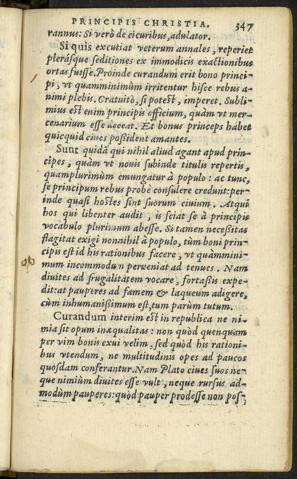 PRINCIPIS CHRISTIA. 347
rannus: Si verò de cicuribus, adulator.
Si quis excutiat veterum annales, reperiet
plerásque seditiones ex immodicis exactionibus
ortas fuisse. Proinde curandum erit bono princi-
pi, vt quamminimùm irritentur hisce rebus a-
nimi plebis. Gratuitò, si potest, imperet. Subli-
mius est enim principis officium, quàm vt mer-
cenarium esse deceat. Et bonus princeps habet
quicquid ciues possident amantes.
Sunt quidã qui nihil aliud agant apud prin-
cipes, quàm vt nouis subinde titulis repertis,
quamplurimùm emungatur à populo: ac tunc,
se principum rebus probè consulere credunt: per-
inde quasi hostes sint suorum ciuium. Atqui
hos qui libenter audit, is sciat se à principis
vocabulo plurimum abesse. Si tamen necessitas
flagitat exigi nonnihil à populo, tùm boni prin-
cipis est id his rationibus facere, vt quàmmini-
mum incommodorum perueniat ad tenues. Nam
diuites ad frugalitatem vocare, fortassis expe-
dit: at pauperes ad famem & laqueum adigere,
cùm inhumanißimum est, tum parùm tutum.
Curandum interim est in republica ne ni-
mia sit opum inæqualitas: non quòd quenquam
per vim bonis exui velim, sed quòd his rationi-
bus vtendum, ne multitudinis opes ad paucos
quosdam conferantur. Nam Plato ciues suos ne-
que nimiùm diuites esse vult, neque rursus ad-
modùm pauperes: quòd pauper prodesse non pos-